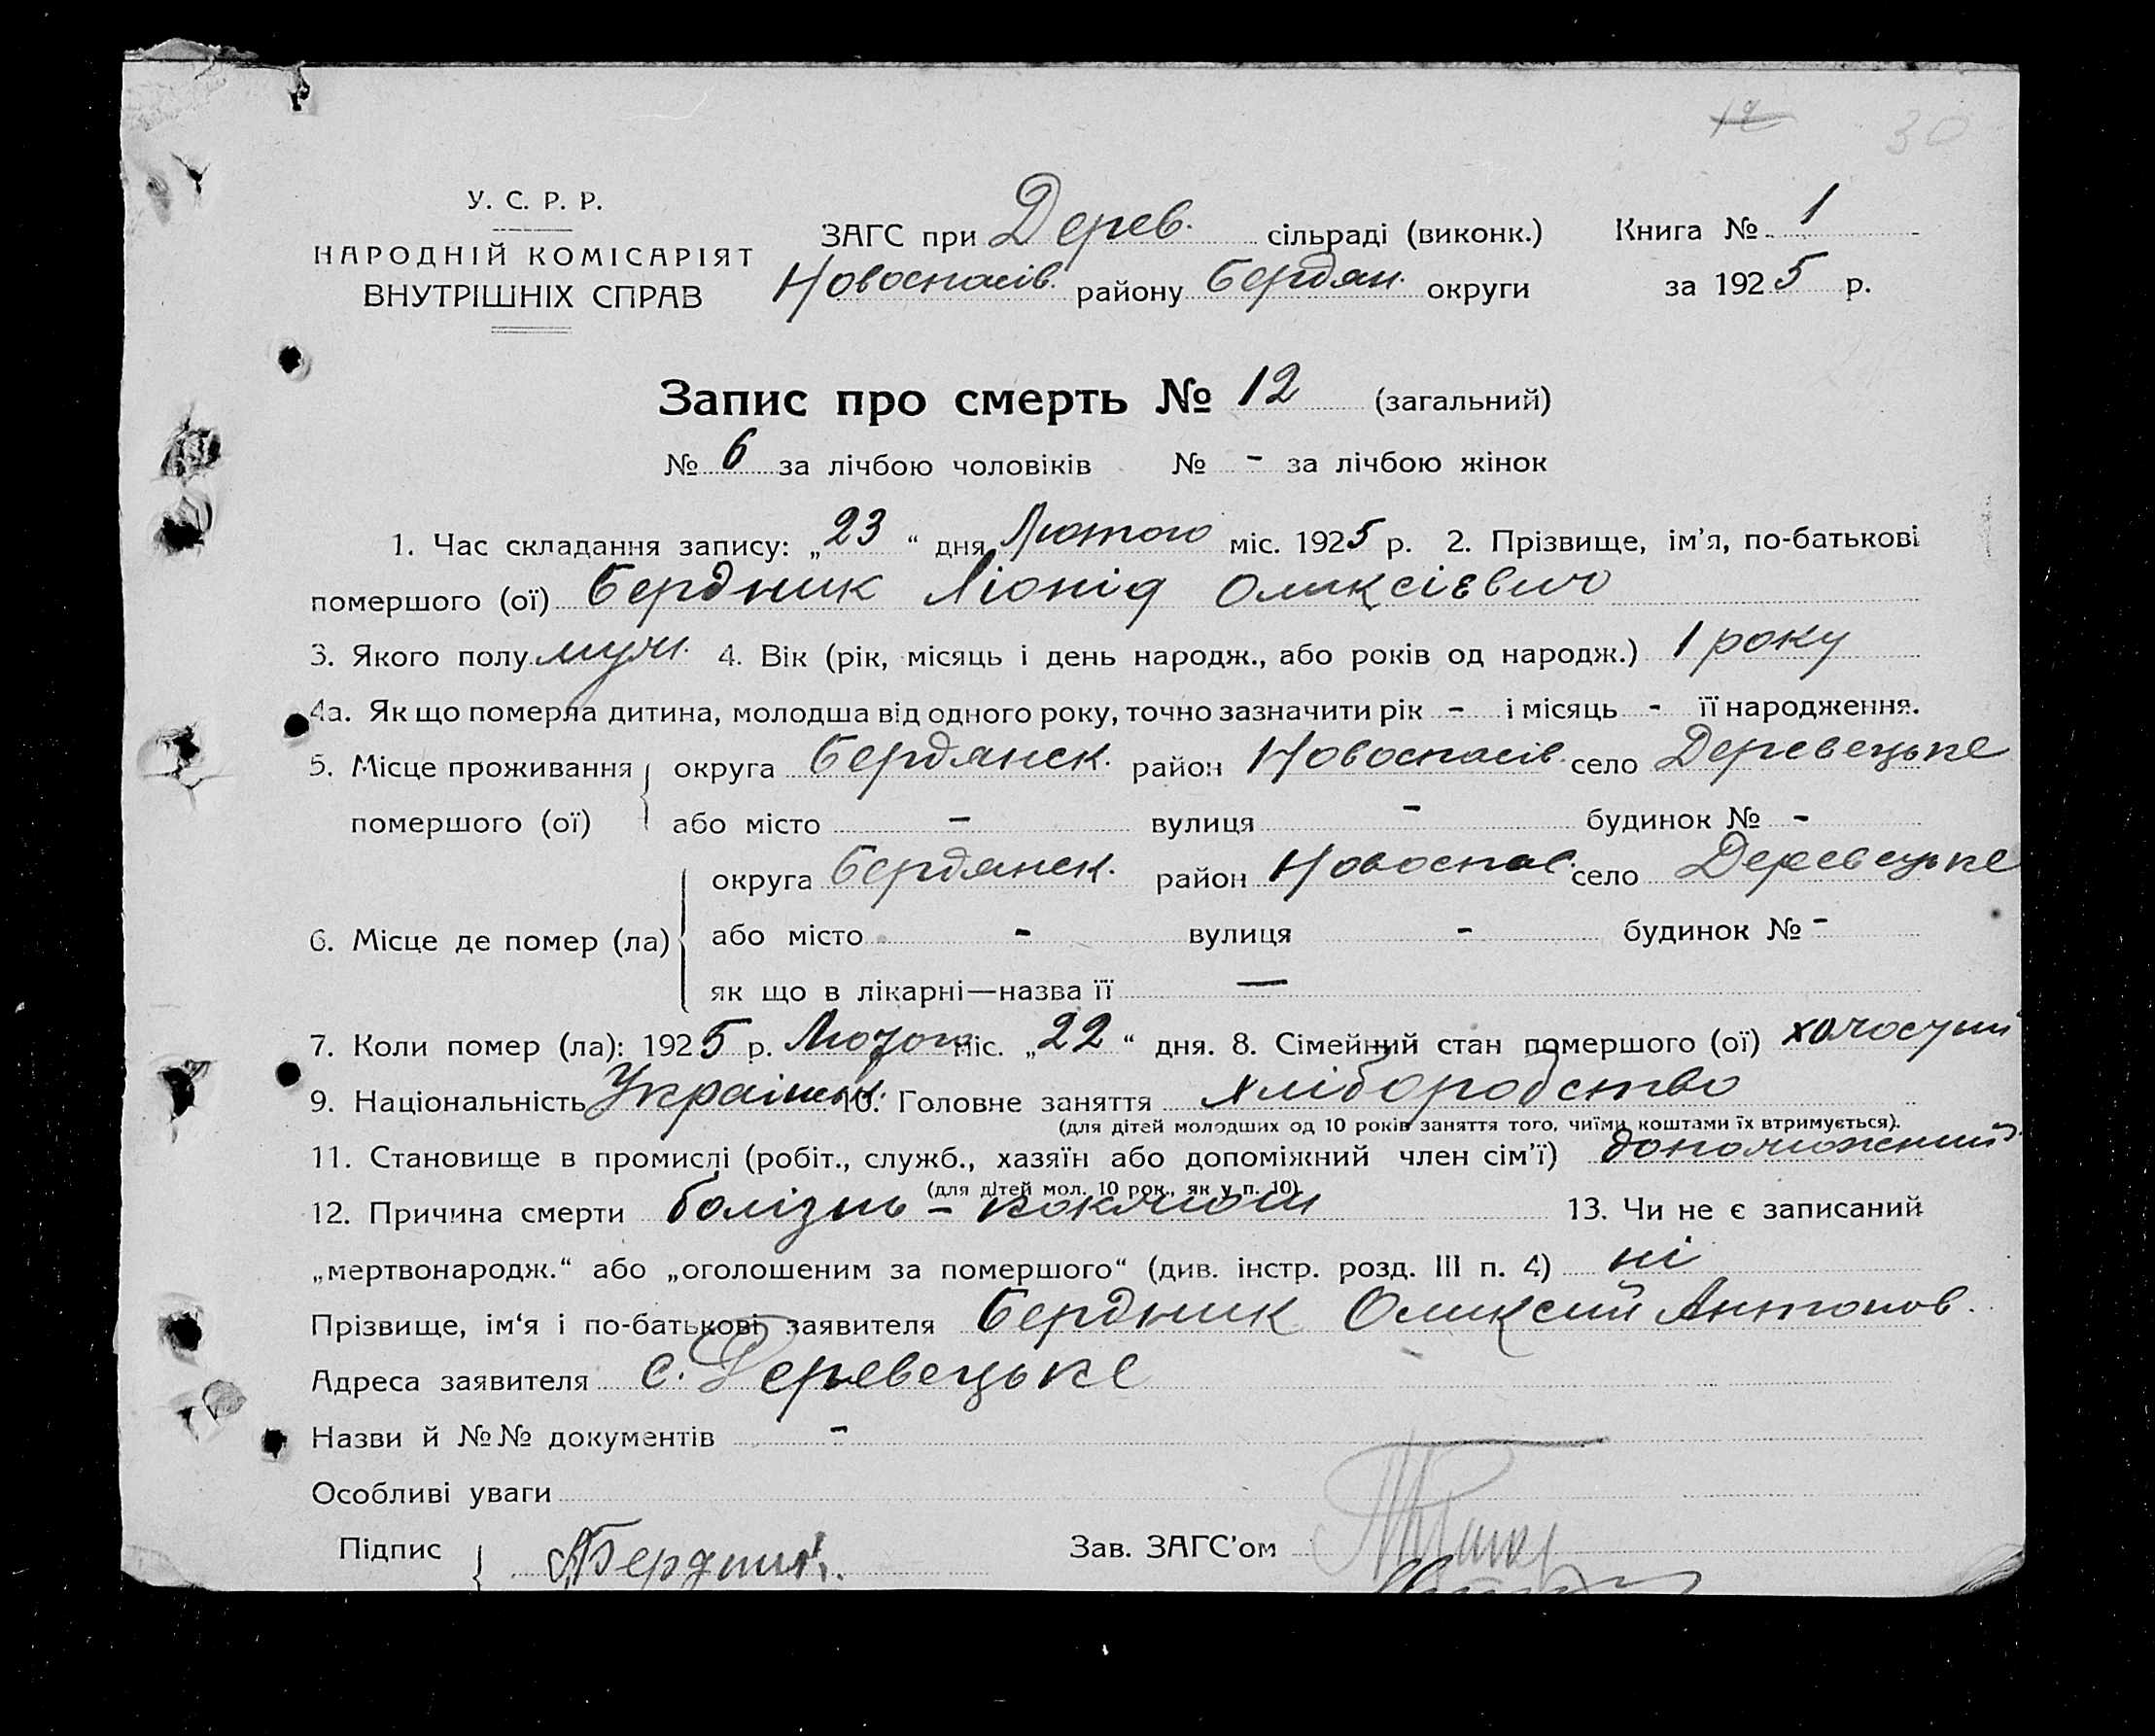 12 30
У. С. Р. Р.
НАРОДНІЙ КОМІСАРІЯТ
ВНУТРІШНІХ СПРАВ
ЗАГС при Дерев. сільраді (виконк.)
Новоспасів. району Бердян. округи
Книга № 1
за 1925 р.
Запис про смерть № 12 (загальний)
№ 6 за лічбою чоловіків № - за лічбою жінок
1. Час складання запису: „23“ дня Лютого міс. 1925 р. 2. Прізвище, ім’я, по-батькові
помершого (ої) Бердник Ліонід Оликсієвич
3. Якого полу муж. 4. Вік (рік, місяць і день народж., або років од народж.) 1 року
4а. Як що померла дитина, молодша від одного року, точно зазначити рік - і місяць - її народження.
5. Місце проживання округа Бердянск. район Новоспасів. село Деревецьке
помершого (ої) або місто - вулиця - будинок № -
округа Бердянск. район Новоспас. село Деревецьке
6. Місце де помер (ла) або місто - вулиця - будинок № -
як що в лікарні—назва її —
7. Коли помер (ла): 1925 р. Лютого міс. „22“ дня. 8. Сімейний стан помершого (ої) холостий
9. Національність Українськ. 10. Головне заняття хліборобство
(для дітей молодших од 10 років заняття того, чиїми коштами їх втримується).
11. Становище в промислі (робіт., служб., хазяїн або допоміжний член сім’ї) допоможений
(для дітей мол. 10 рок., як у п. 10)
12. Причина смерти болізнь - коклюш 13. Чи не є записаний
„мертвонародж.“ або „оголошеним за помершого“ (див. інстр. розд. III п. 4) ні
Прізвище, ім‘я і по-батькові заявителя Бердник Оликсий Антонов.
Адреса заявителя с. Деревецьке
Назви й №№ документів -
Особливі уваги
Підпис А Бердник. Зав. ЗАГС’ом